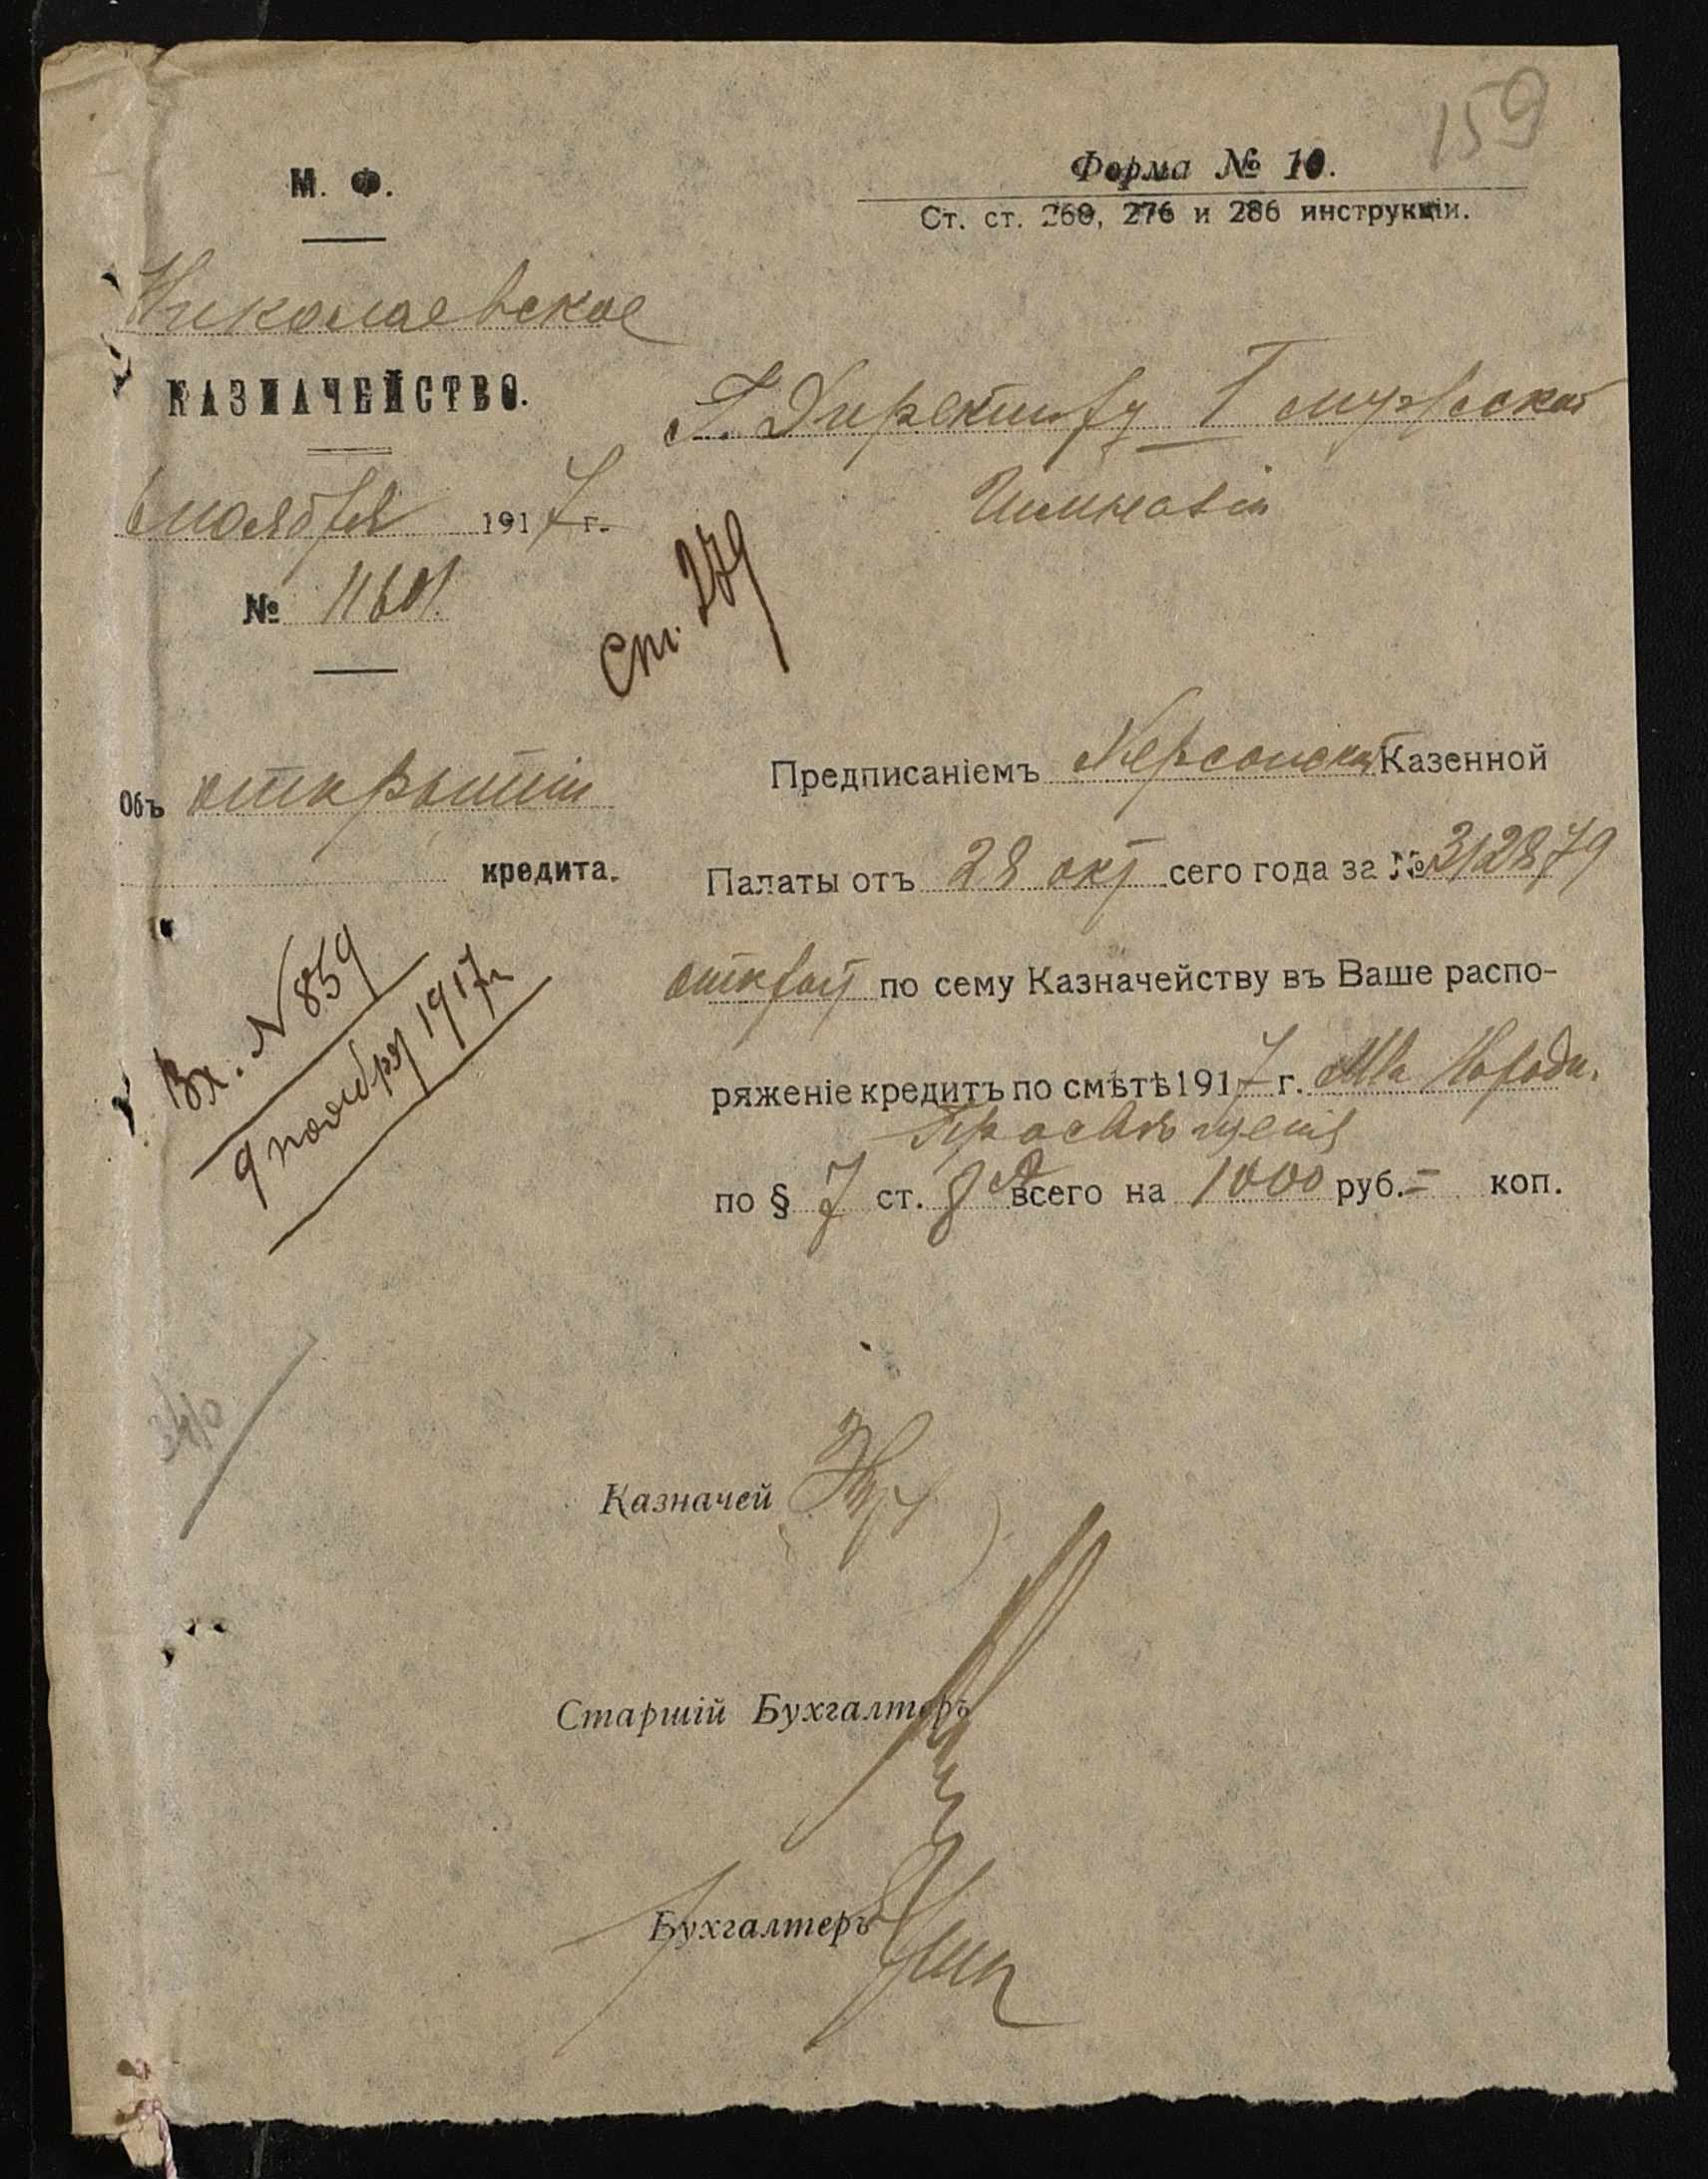 159
М. Ф.
Форма № 10.
Ст. ст. 260, 276 и 286 инструкціи.
Николаевское
КАЗНАЧЕЙСТВО.
Г. Директору I мужской
Гимназіи
6 ноября 1917 г.
№ 11601
Ст. 279
Объ открытіи
кредита.
Предписаніемъ Херсонской Казенной
Палаты отъ 28 окт сего года за № 312879
открыт по сему Казначейству въ Ваше распо-
ряженіе кредитъ по смѣтѣ 1917 г. М-ва Народн.
Просвѣщенія
по § 7 ст. 8 всего на 1000 руб. = коп.
Вх. N 859
9 ноября 1917 г.
Казначей
Старшій Бухгалтеръ
Бухгалтеръ